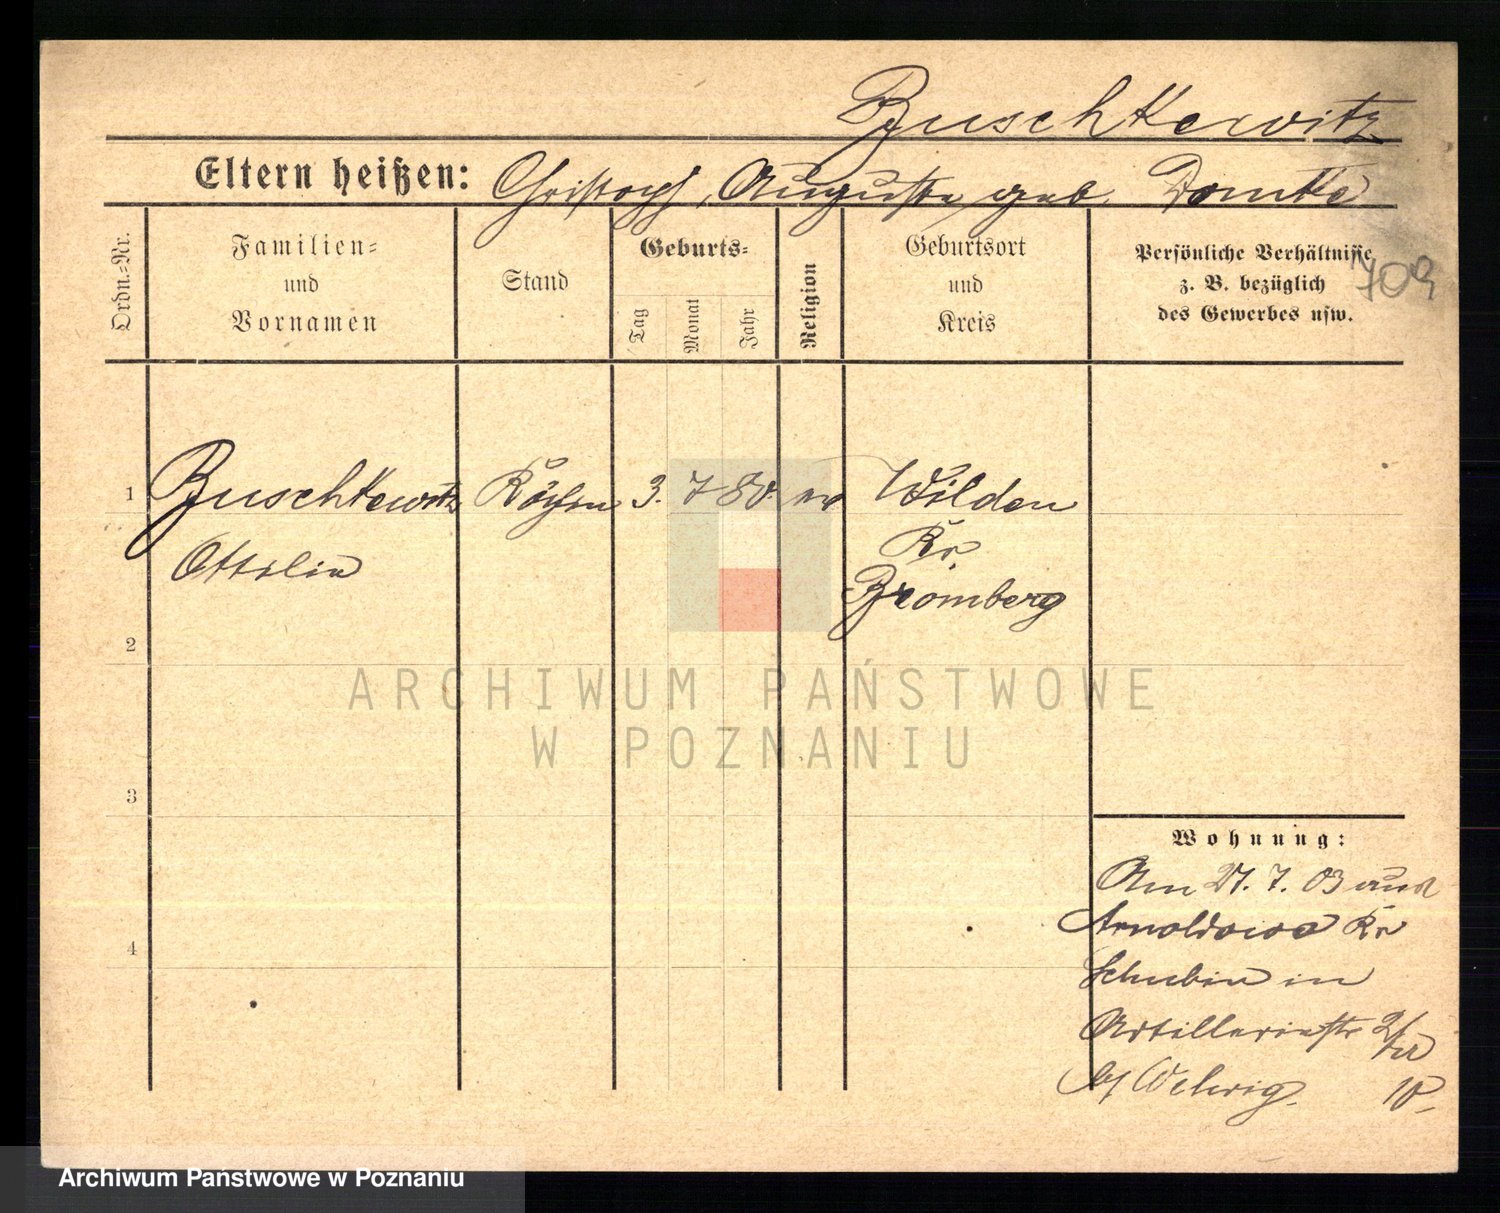 Buschkewitz
Eltern heißen: Christoph, Auguste geb. Domke
Ordn.-Nr.
Familien-
und
Vornamen
Stand
Geburts-
Tag
Monat
Jahr
Religion
Geburtsort
und
Kreis
Persönliche Verhältnisse
z. B. bezüglich
des Gewerbes usw.
709
1 Buschkewitz Köchin 3. 7 80. ev Wilden
Ottilie
Kr.
Bromberg
2
3
4
Wohnung:
Am 27. 7. 03 aus
Arnoldowo Kr
Schubin in
Artilleriestr 2/
b/
10.
ARCHIWUM PAŃSTWOWE
W POZNANIU
Archiwum Państwowe w Poznaniu